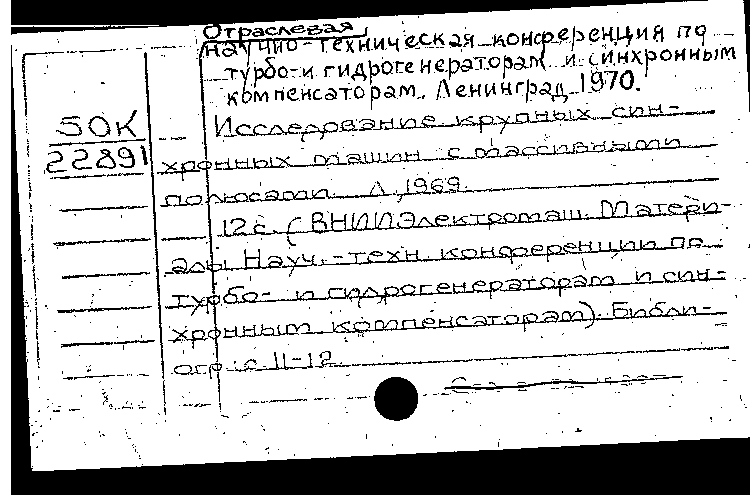 Отраслевая
научно-техническая конференция по
турбо- и гидрогенераторам и синхронным
компенсаторам. Ленинград 1970.
50К
22891
Исследование крупных син-
хронных машин с массивными
полюсами. Л., 1969.
12 с. (ВНИИЭлектромаш. Матери-
алы Науч.-техн. конференции по
турбо- и гидрогенераторам и син-
хронным компенсаторам). Библи-
огр.: с. 11-12.